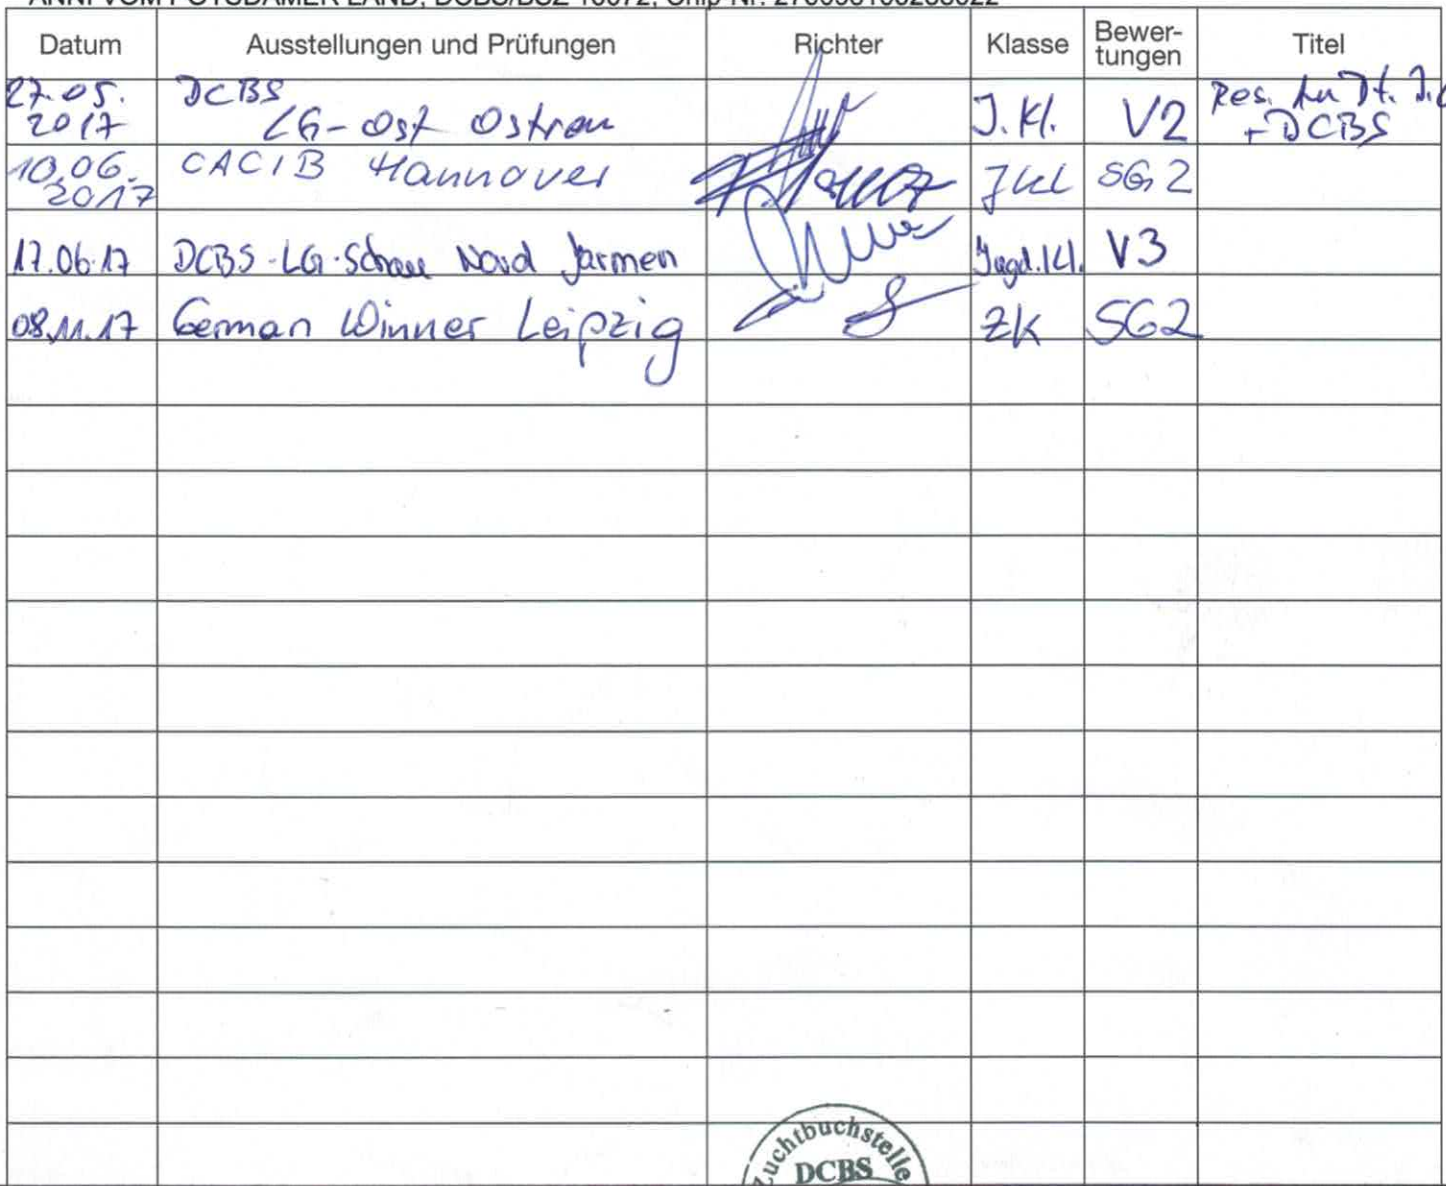 Datum Ausstellungen und Prüfungen Richter Klasse Bewer-tungen Titel
27.05.2017 DCBS LG-Ost Ostrau J.Kl. V2 Res. + DCBS
10.06.2017 CACIB Hannover JKL SG2
17.06.17 DCBS-LG-Schau Nord Jarmen Jugd.Kl. V3
08.11.17 German Winner Leipzig ZK SG2
Zuchtbuchstelle
DCBS